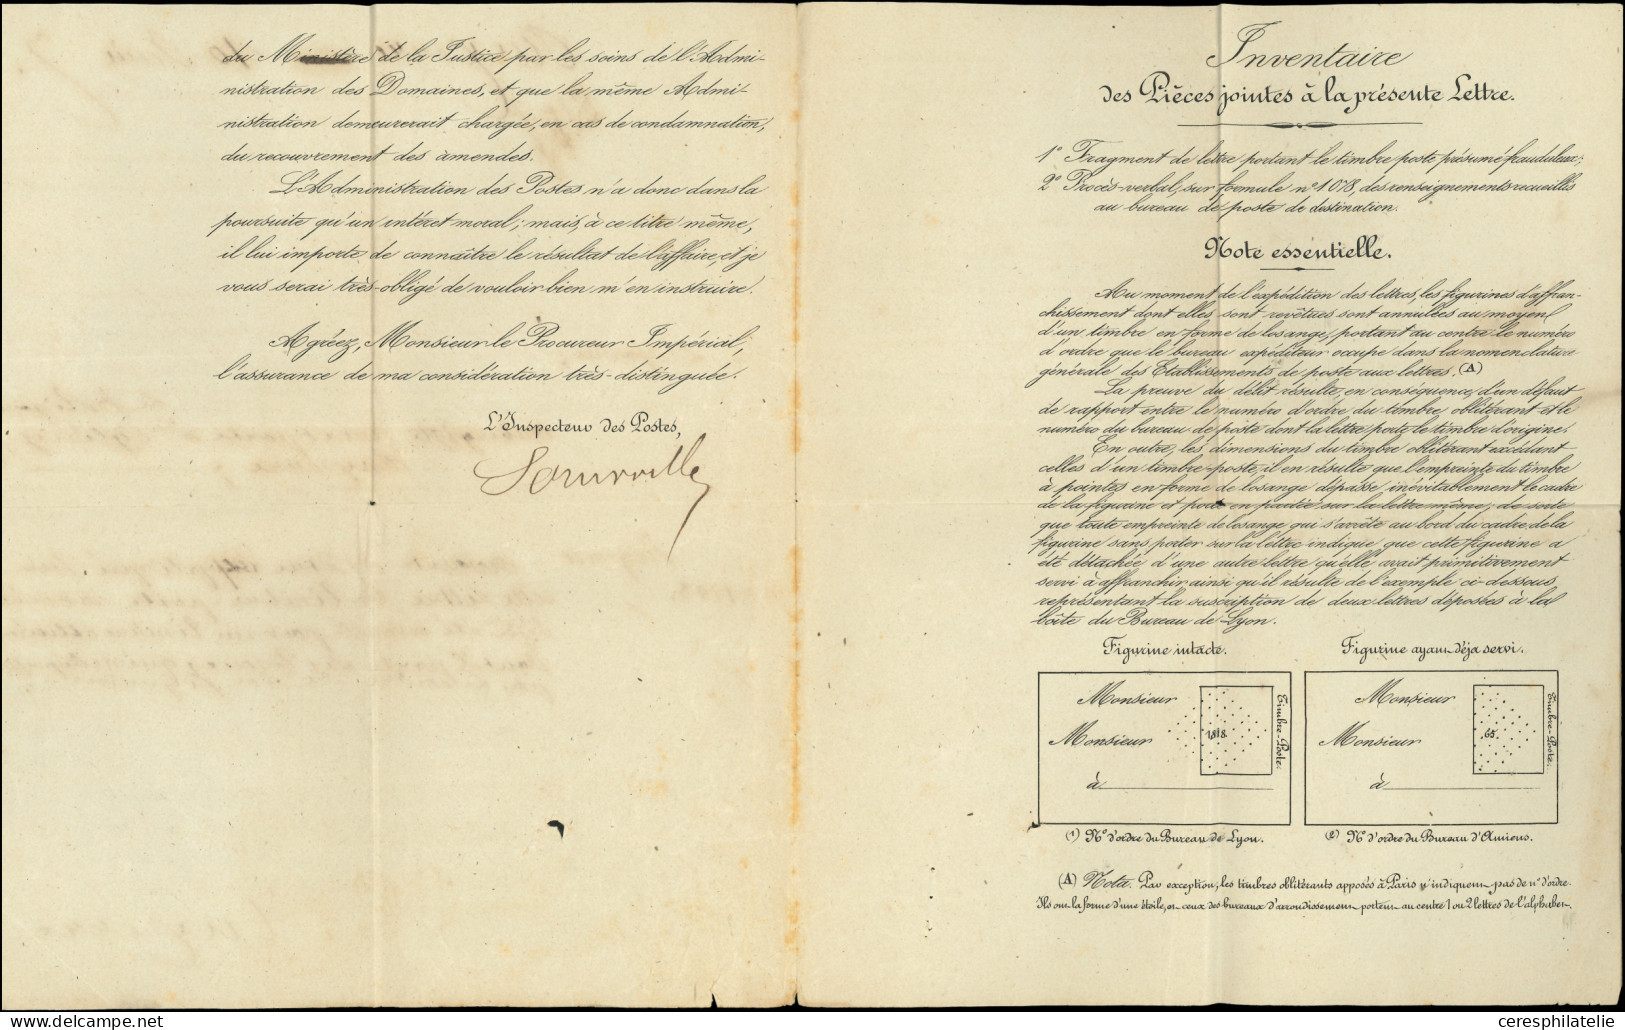 du Ministère de la Justice par les soins de l'Admi-
nistration des Domaines, et que la même Admi-
nistration demeurerait chargée, en cas de condamnation,
du recouvrement des amendes.
L'Administration des Postes n'a donc dans la
poursuite qu'un intéret moral; mais, à ce titre même,
il lui importe de connaître le résultat de l'affaire, et je
vous serai très-obligé de vouloir bien m'en instruire.
Agréez, Monsieur le Procureur Impérial,
l'assurance de ma considération très-distinguée.
L'Inspecteur des Postes,
Inventaire
des Pièces jointes à la présente Lettre.
1° Fragment de lettre portant le timbre poste présumé frauduleux;
2° Procès-verbal, sur formule n° 1078, des renseignements recueillis
au bureau de poste de destination.
Note essentielle.
Au moment de l'expédition des lettres, les figurines d'affran-
chissement dont elles sont revêtues sont annulées au moyen
d'un timbre en forme de losange, portant au centre le numéro
d'ordre que le bureau expéditeur occupe dans la nomenclature
générale des Etablissements de poste aux lettres. (A)
La preuve du délit résulte, en conséquence, d'un défaut
de rapport entre le numéro d'ordre du timbre oblitérant et le
numéro du bureau de poste dont la lettre porte le timbre d'origine.
En outre, les dimensions du timbre oblitérant excédant
celles d'un timbre-poste, il en résulte que l'empreinte du timbre
à pointes en forme de losange dépasse inévitablement le cadre
de la figurine et porte en partie sur la lettre même; de sorte
que toute empreinte de losange qui s'arrête au bord du cadre de la
figurine sans porter sur la lettre indique que cette figurine a
été détachée d'une autre lettre qu'elle avait primitivement
servi à affranchir ainsi qu'il résulte de l'exemple ci-dessous,
représentant la suscription de deux lettres déposées à la
boîte du Bureau de Lyon.
Figurine intacte.
Figurine ayant déja servi.
Monsieur
Monsieur
à
1818
Timbre-Poste.
Monsieur
Monsieur
à
65.
Timbre-Poste.
(1) N° d'ordre du Bureau de Lyon.
(2) N° d'ordre du Bureau d'Amiens.
(A) Nota. Par exception, les timbres oblitérants apposés à Paris n'indiquent pas de n° d'ordre.
Ils ont la forme d'une étoile, et ceux des bureaux d'arrondissement portent au centre 1 ou 2 lettres de l'alphabet.
ceresphilatelie